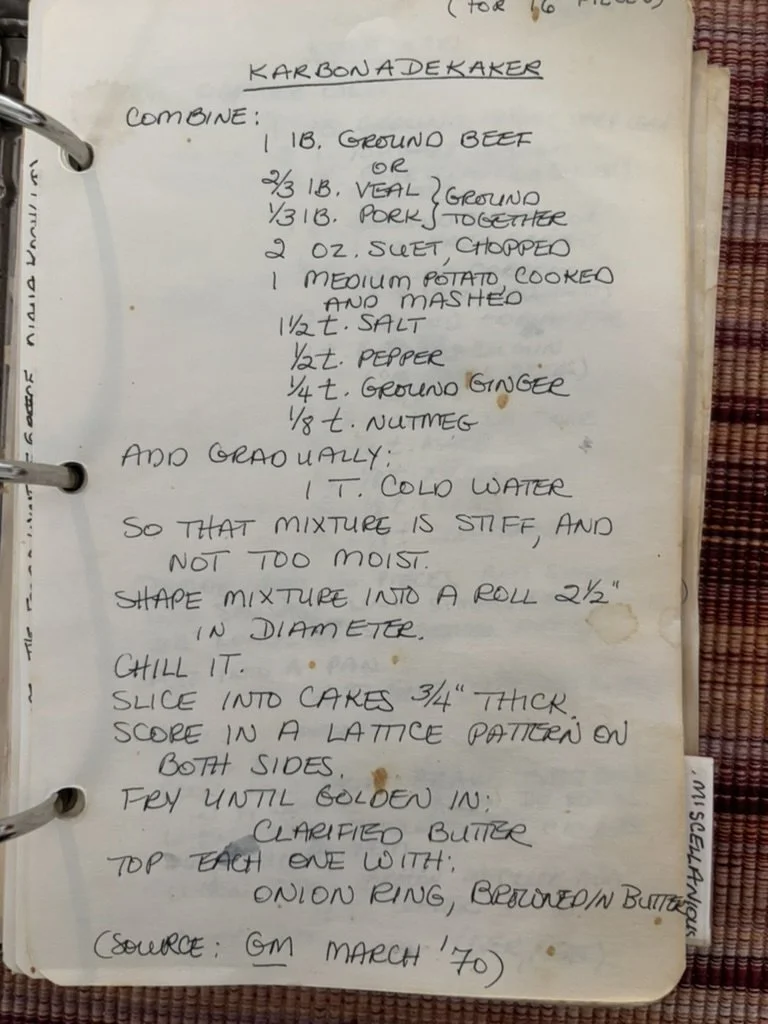 (FOR 16
KARBONADEKAKER
COMBINE:
1 LB. GROUND BEEF
OR
2/3 LB. VEAL } GROUND
1/3 LB. PORK } TOGETHER
2 OZ. SUET, CHOPPED
1 MEDIUM POTATO, COOKED
AND MASHED
1 1/2 t. SALT
1/2 t. PEPPER
1/4 t. GROUND GINGER
1/8 t. NUTMEG
ADD GRADUALLY:
1 T. COLD WATER
SO THAT MIXTURE IS STIFF, AND
NOT TOO MOIST.
SHAPE MIXTURE INTO A ROLL 2 1/2"
IN DIAMETER.
CHILL IT.
SLICE INTO CAKES 3/4" THICK.
SCORE IN A LATTICE PATTERN ON
BOTH SIDES.
FRY UNTIL GOLDEN IN:
CLARIFIED BUTTER
TOP EACH ONE WITH:
ONION RING, BROWNED IN BUTTER
(SOURCE: GM MARCH '70)
MISCELLANIOUS